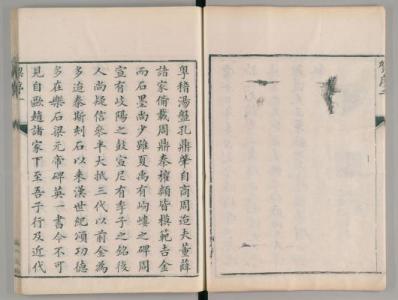 粵稽湯盤孔鼎肇自商周迨夫董薛
諸家備載周鼎秦權類皆模範吉金
而石墨尚少雖夏禹有岣嶁之碑周
宣有岐陽之鼓宣尼有季子之銘後
人尚疑信參半大抵三代以前金為
多迨秦斯刻石以來漢世紀頌功德
多在樂石梁元帝碑英一書今不可
見自歐趙諸家下至吾子行及近代